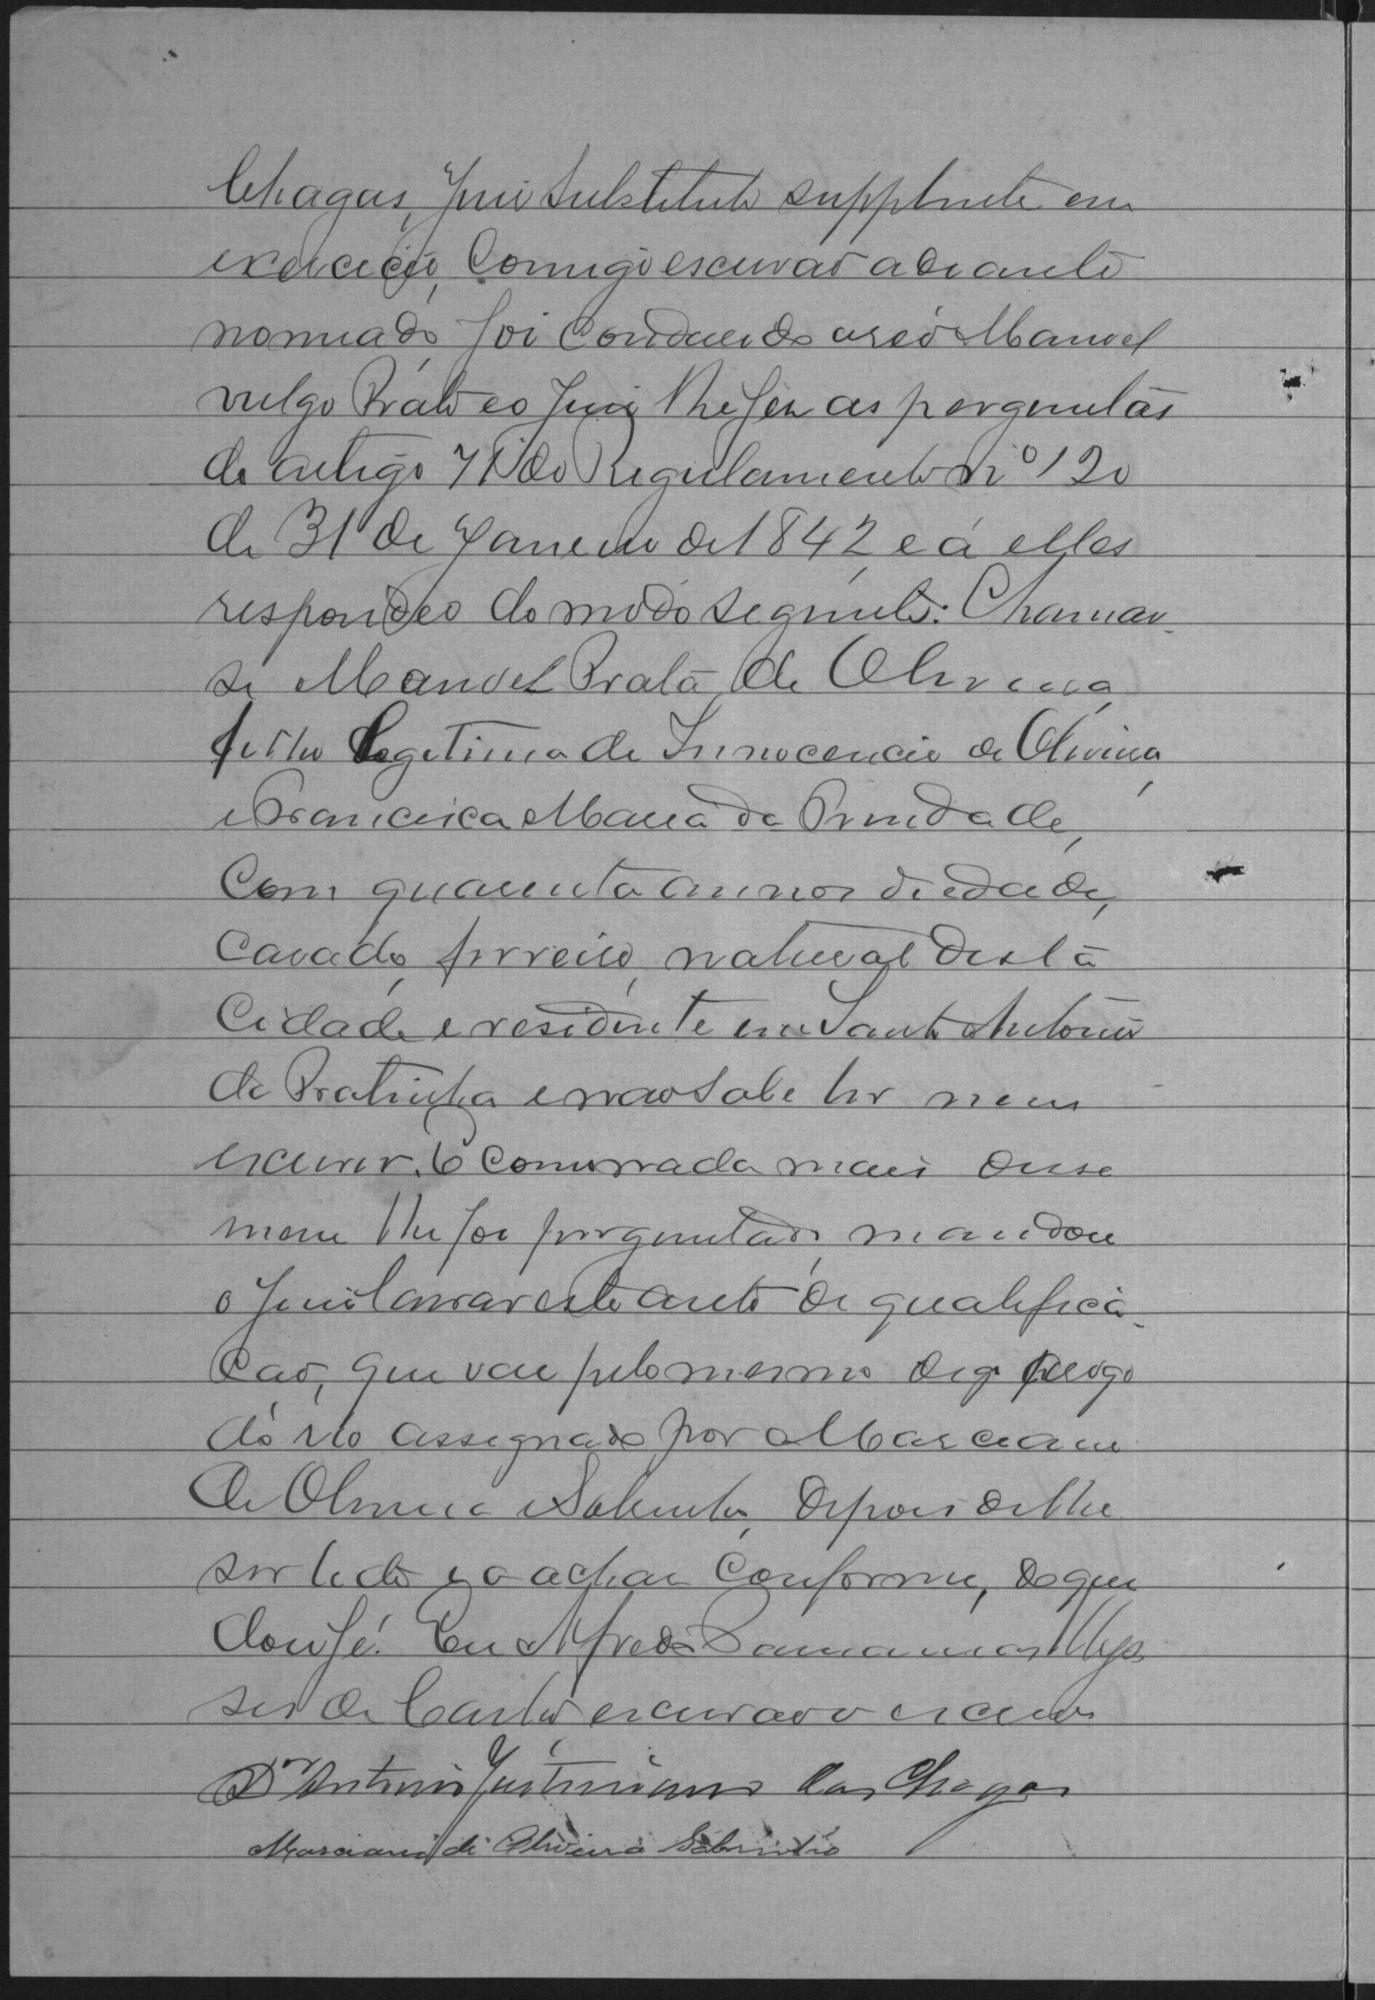 Chagas, Juiz Substituto supplente em
exercicio, Comigo escrivaõ adeante
nomeado, foi condusido o reo Manoel
vulgo Prata e o Juiz lhe fez as perguntas
do artigo 171 do Regulamento nº 120
de 31 de Janeiro de 1842, e á ellas
respondeo do modo seguinte: Chamar-
se Manoel Prata de Oliveira,
filho legitimo de Innocencio de Oliveira,
e Francisca Maria da Trindade,
Com quarenta annos de edade,
Casado, ferreiro, natural desta
Cidade e residente em Santo Antonio
da Pratinha e nao sabe ler nem
escrever. E como nada mais disse
nem lhe foi perguntado, mandou
o Juiz lavrar este auto de qualifica-
caõ, que vae pelo mesmo digo a rogo
do réo assegnado por Marciano
de Oliveira Sobrinho, depois de lhe
ser lido e o achar conforme, do que
dou fé. Eu Alfredo
de Castro, escrivaõ o escrevi
Dr Antonio Justiniano das Chagas
Marciano di Oliveira Sobrinho